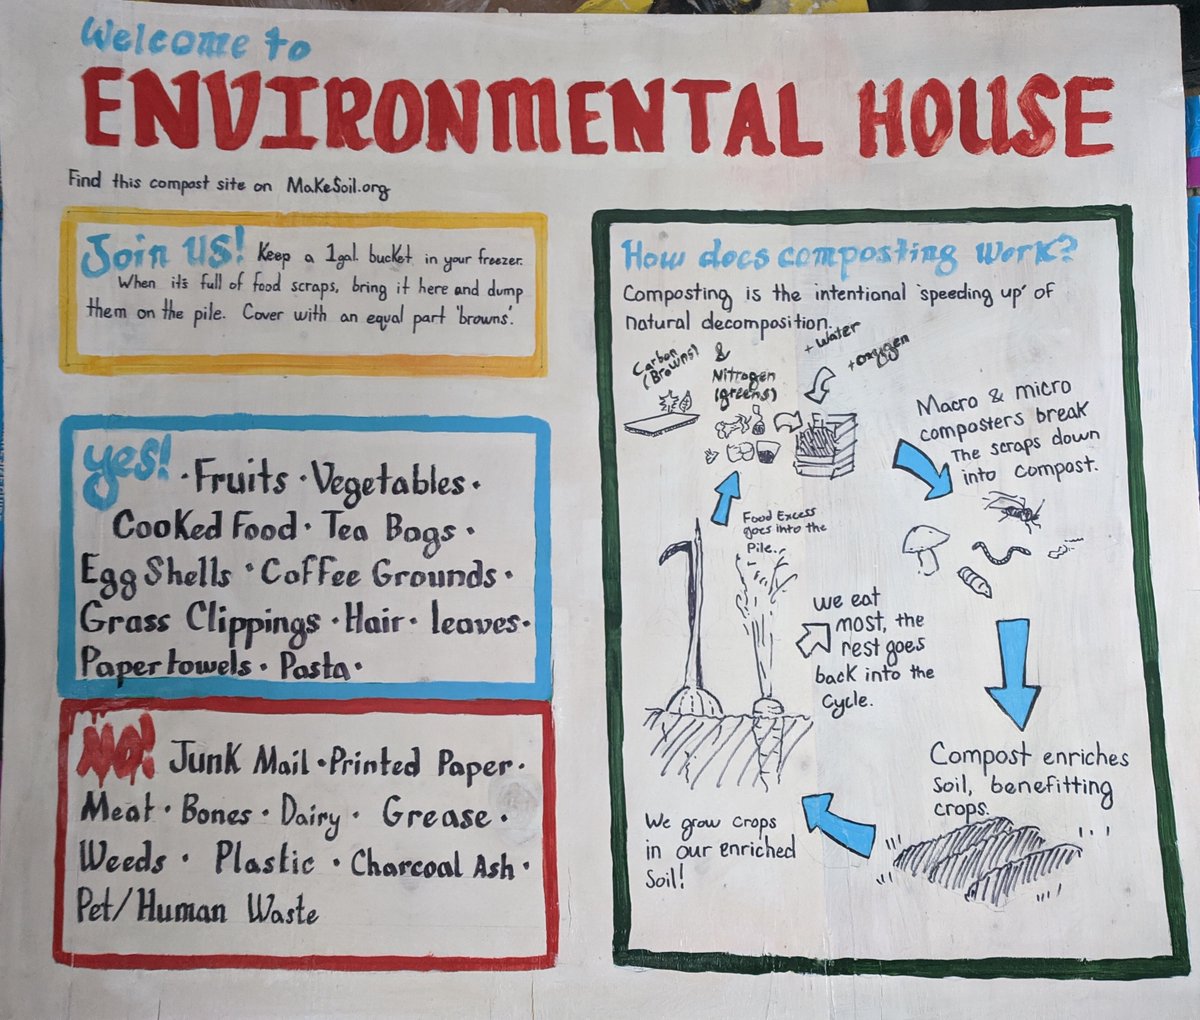 Welcome to
ENVIRONMENTAL HOUSE
Find this compost site on MakeSoil.org
Join us! Keep a 1gal. bucket in your freezer.
When it's full of food scraps, bring it here and dump
them on the pile. Cover with an equal part 'browns'.
yes! · Fruits · Vegetables ·
Cooked Food · Tea Bags ·
Egg Shells · Coffee Grounds ·
Grass Clippings · Hair · leaves ·
Paper towels · Pasta ·
NO! Junk Mail · Printed Paper ·
Meat · Bones · Dairy · Grease ·
Weeds · Plastic · Charcoal Ash ·
Pet/Human Waste
How does composting work?
Composting is the intentional 'speeding up' of
natural decomposition.
Carbon
(Browns)
&
Nitrogen
(greens)
+ water
+ oxygen
Macro & micro
composters break
The scraps down
into compost.
Food Excess
goes into the
Pile.
we eat
most, the
rest goes
back into the
cycle.
Compost enriches
Soil, benefitting
crops.
We grow crops
in our enriched
Soil!